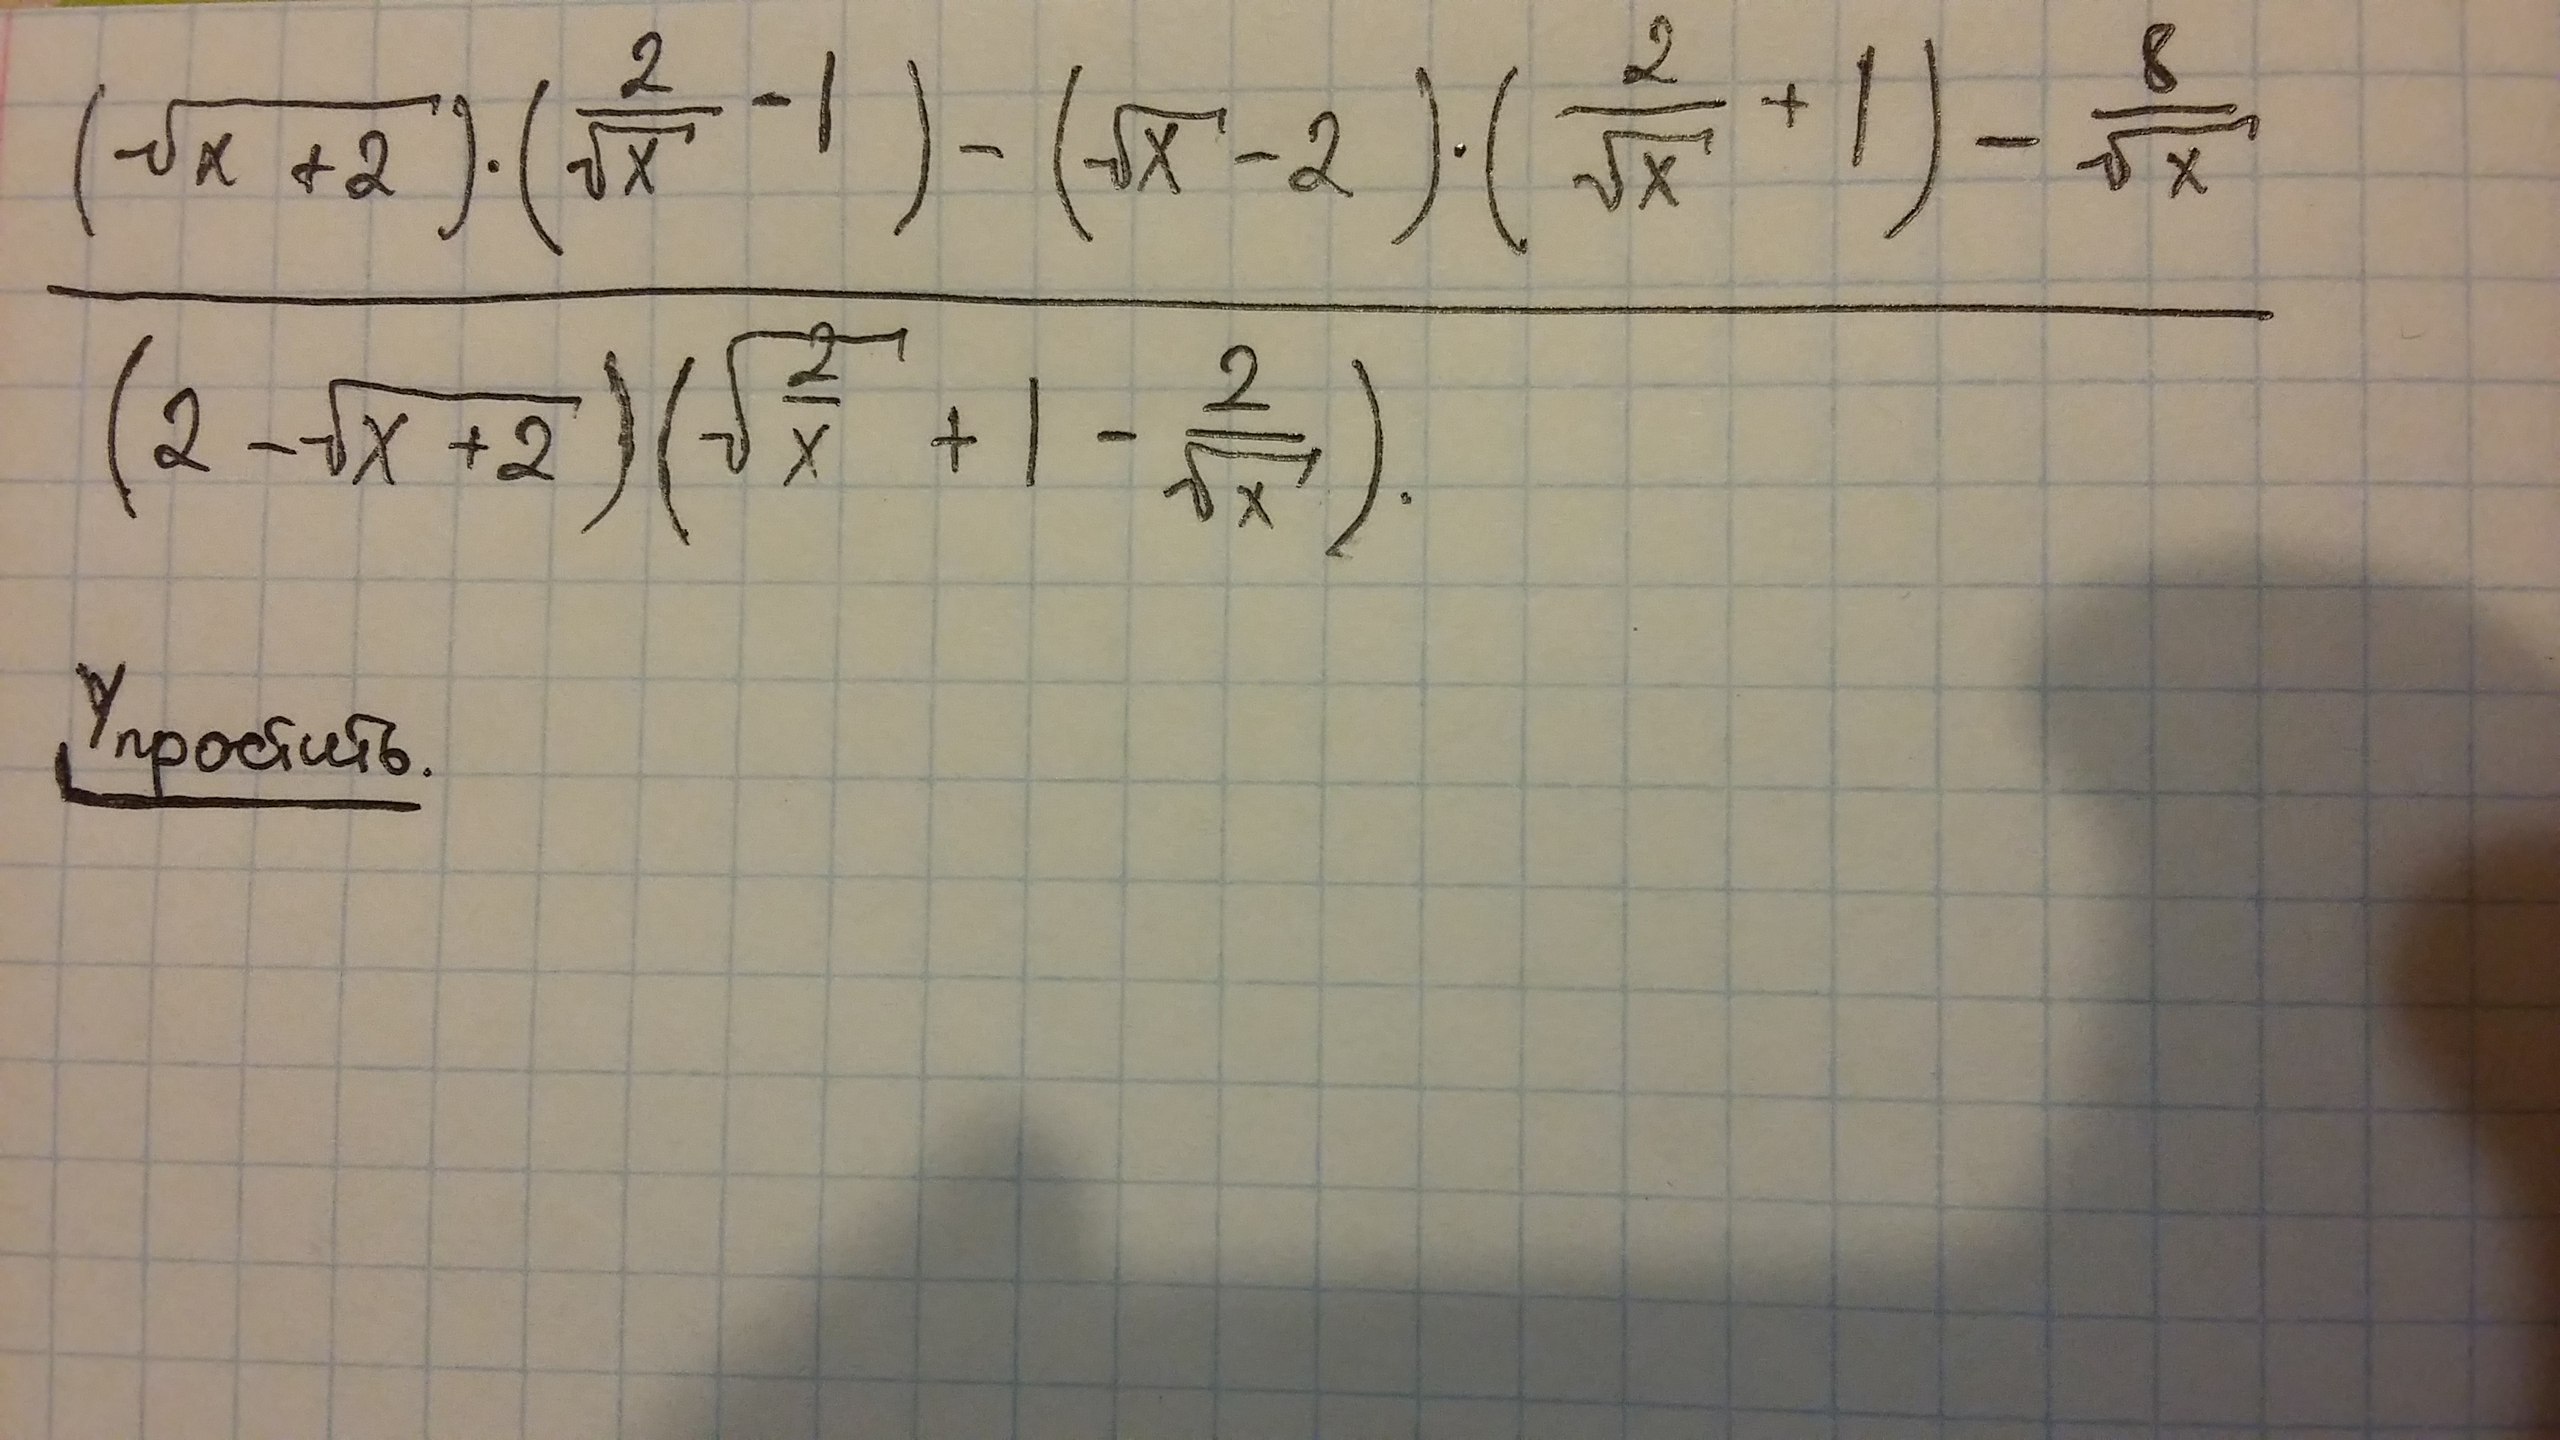 (√(x+2))·(2/√x - 1) - (√x - 2)·(2/√x + 1) - 8/√x
(2 - √(x+2))(√(2/x) + 1 - 2/√x).
Упростить.